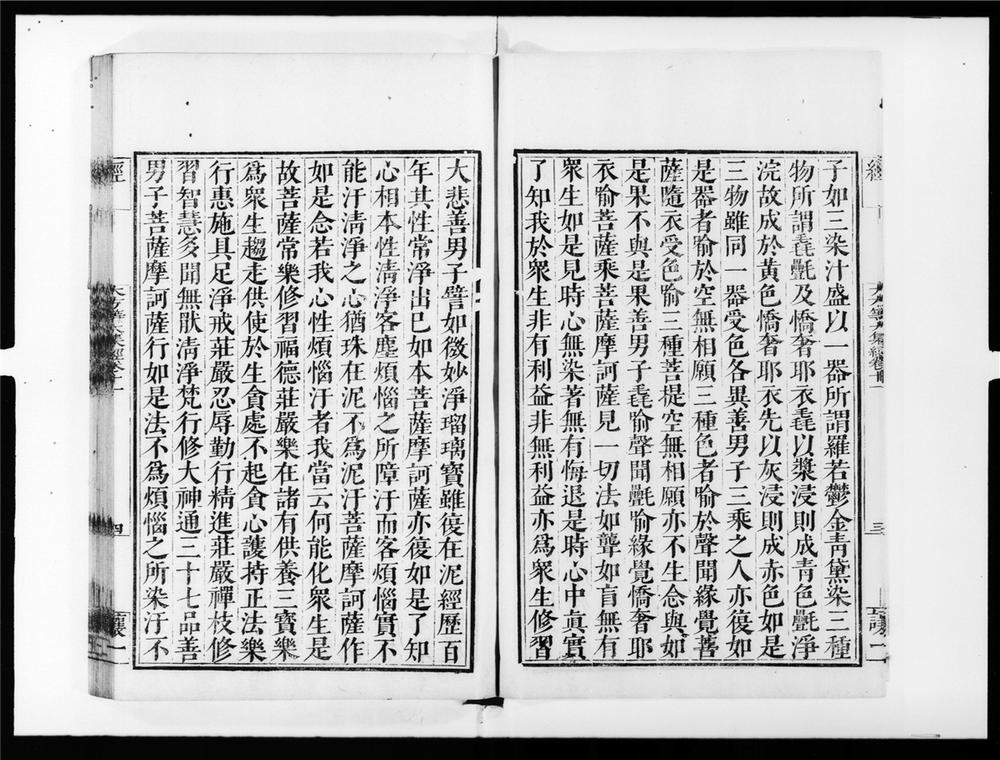 子如三染汁盛以一器所謂羅若鬱金青黛染三種
物所謂毳㲲及憍奢耶衣毳以漿浸則成青色㲲淨
浣故成於黃色憍奢耶衣先以灰浸則成赤色如是
三物雖同一器受色各異善男子三乘之人亦復如
是器者喻於空無相願三種色者喻於聲聞緣覺菩
薩隨衣受色喻三種菩提空無相願亦不生念與如
是果不與是果善男子毳喻聲聞㲲喻緣覺憍奢耶
衣喻菩薩乘菩薩摩訶薩見一切法如聾如盲無有
衆生如是見時心無染著無有悔退是時心中眞實
了知我於衆生非有利益非無利益亦爲衆生修習
大悲善男子譬如微妙淨瑠璃寶雖復在泥經歷百
年其性常淨出已如本菩薩摩訶薩亦復如是了知
心相本性淸淨客塵煩惱之所障汙而客煩惱實不
能汙淸淨之心猶珠在泥不爲泥汙菩薩摩訶薩作
如是念若我心性煩惱汙者我當云何能化衆生是
故菩薩常樂修習福德莊嚴樂在諸有供養三寶樂
爲衆生趨走供使於生貪處不起貪心護持正法樂
行惠施具足淨戒莊嚴忍辱勤行精進莊嚴禪枝修
習智慧多聞無猒淸淨梵行修大神通三十七品善
男子菩薩摩訶薩行如是法不爲煩惱之所染汙不
經
四
經
三